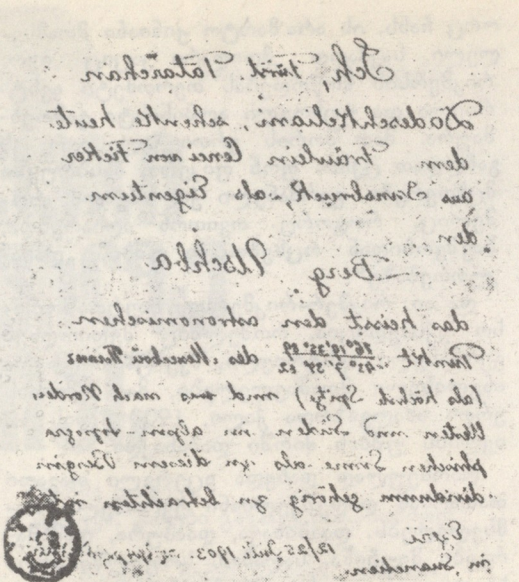 Ich, Fürst Tatarchan
Dadeschkeliani, schenke heute
dem Fräulein Cenci von Ficker
aus Innsbruck, als Eigentum
den
Berg Uschba
das heisst den astronomischen
Punkt des Menschen
(als höchste Spitze), und was nach Norden
Westen und Süden im alpin-topogra-
phischen Sinne als zu diesem Bergin-
dividuum gehörig zu betrachten ist.
Ezeri
in Suanetien. 12/25 Juli 1903.